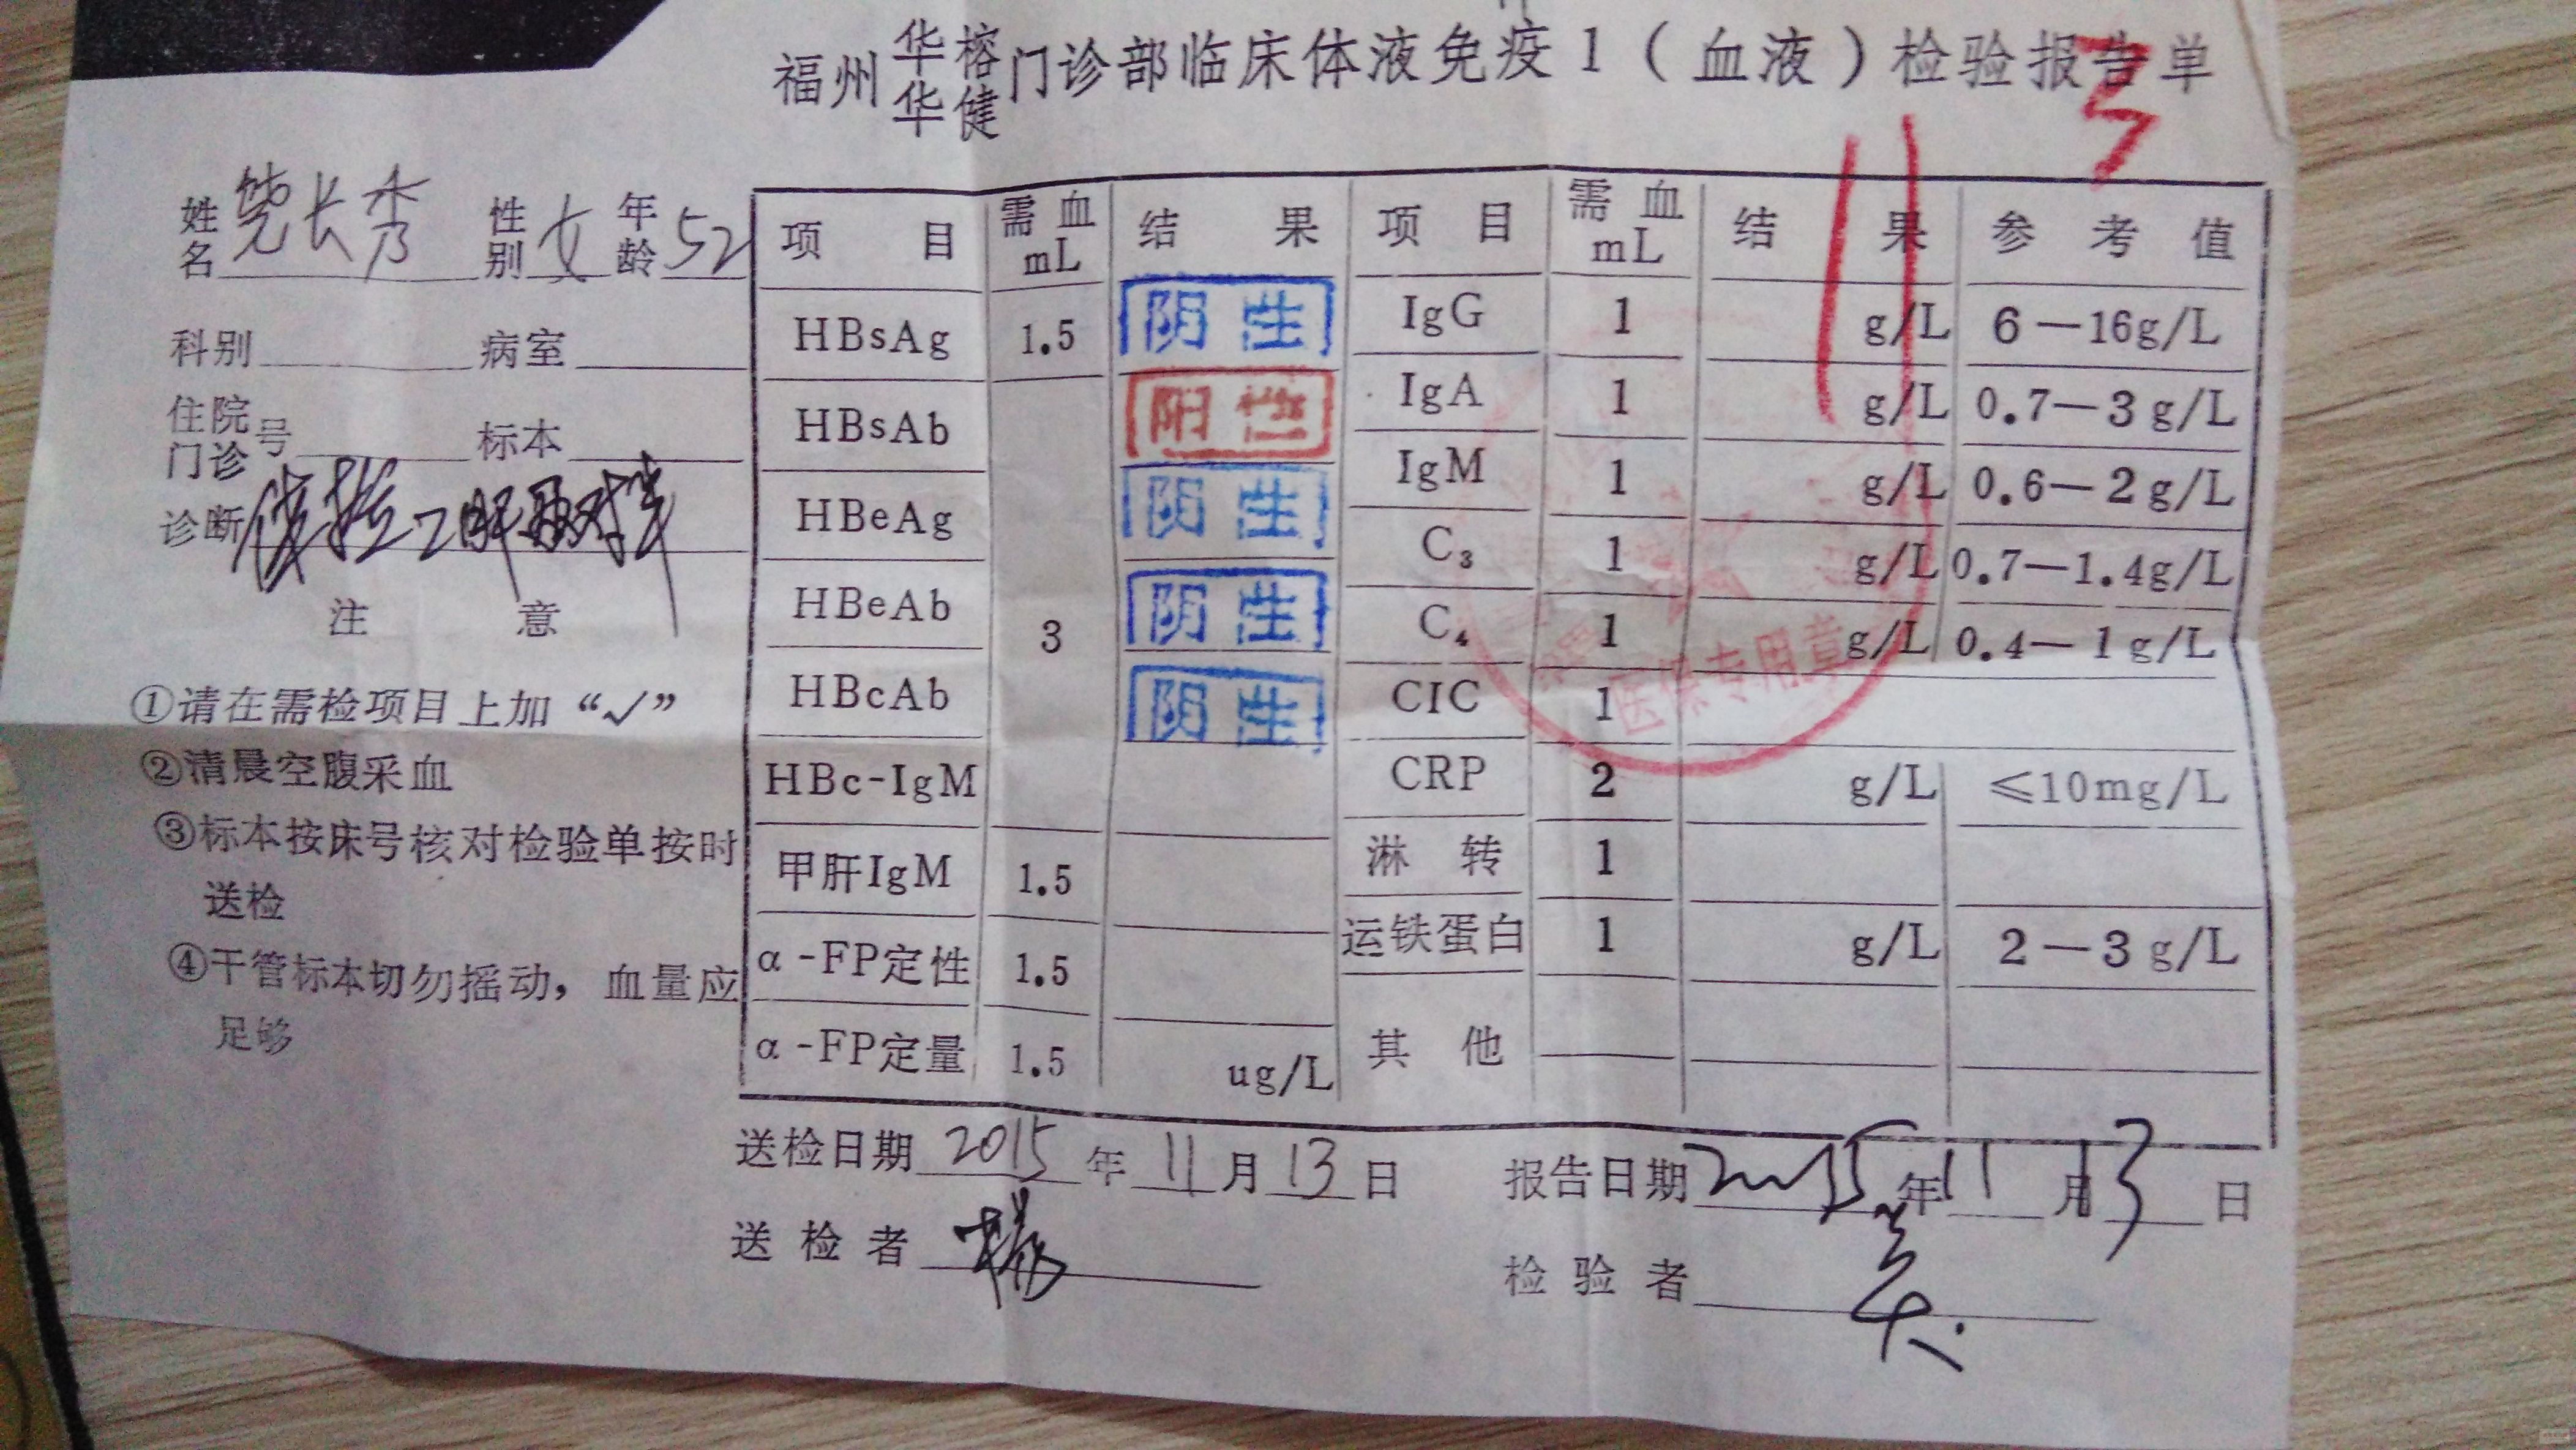 福州华榕华健门诊部临床体液免疫1（血液）检验报告单
姓名 饶长秀 性别 女 年龄 52
科别 病室
住院门诊号 标本
诊断
注 意
①请在需检项目上加“✓”
②清晨空腹采血
③标本按床号核对检验单按时
送检
④干管标本切勿摇动，血量应
足够
项 目 需血mL 结 果 项 目 需血mL 结 果 参 考 值
HBsAg 1.5 阴性 IgG 1 g/L 6－16g/L
HBsAb 阳性 IgA 1 g/L 0.7－3 g/L
HBeAg 阴性 IgM 1 g/L 0.6－2 g/L
HBeAb 3 阴性 C₃ 1 g/L 0.7－1.4g/L
HBcAb 阴性 C₄ 1 g/L 0.4－1 g/L
CIC 1
HBc-IgM CRP 2 g/L ≤10mg/L
甲肝IgM 1.5 淋 转 1
α-FP定性 1.5 运铁蛋白 1 g/L 2－3 g/L
α-FP定量 1.5 ug/L 其 他
医保专用章
送检日期 2015 年 11 月 13 日 报告日期 2015 年 11 月 13 日
送 检 者 检 验 者